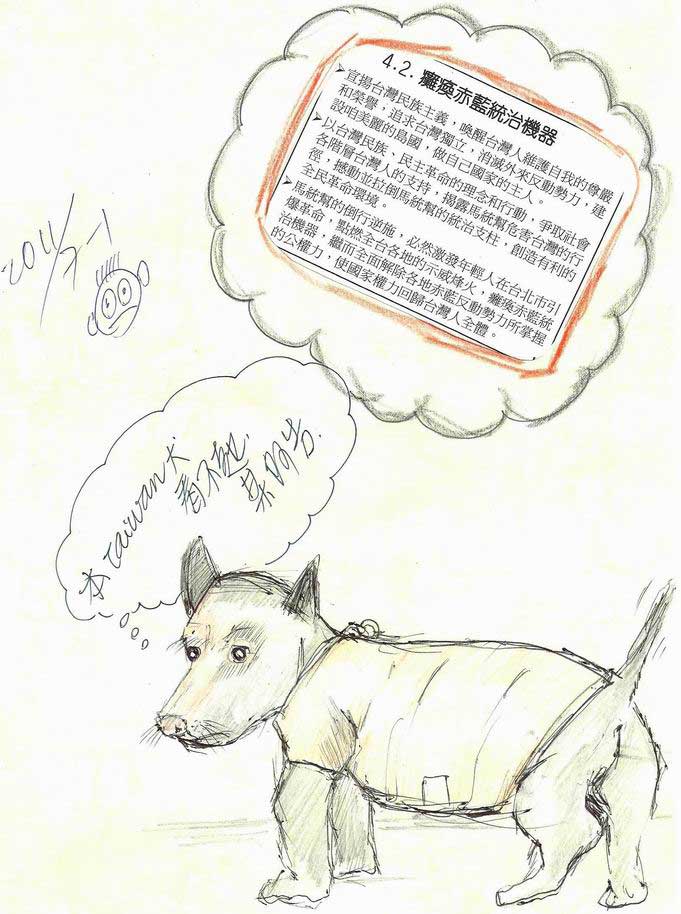 4.2. 癱瘓赤藍統治機器
➤宣揚台灣民族主義，喚醒台灣人維護自我的尊嚴
和榮譽，追求台灣獨立，消滅外來反動勢力，建
設咱美麗的島國，做自己國家的主人。
➤以台灣民族、民主革命的理念和行動，爭取社會
各階層台灣人的支持，揭露馬統幫危害台灣的行
徑，撼動並拉倒馬統幫的統治支柱，創造有利的
全民革命環境。
➤馬統幫的倒行逆施，必然激發年輕人在台北市引
爆革命，點燃全台各地的示威烽火，癱瘓赤藍統
治機器，繼而全面解除各地赤藍反動勢力所掌握
的公權力，使國家權力回歸台灣人全體。
2011/
本Taiwan犬
看不起